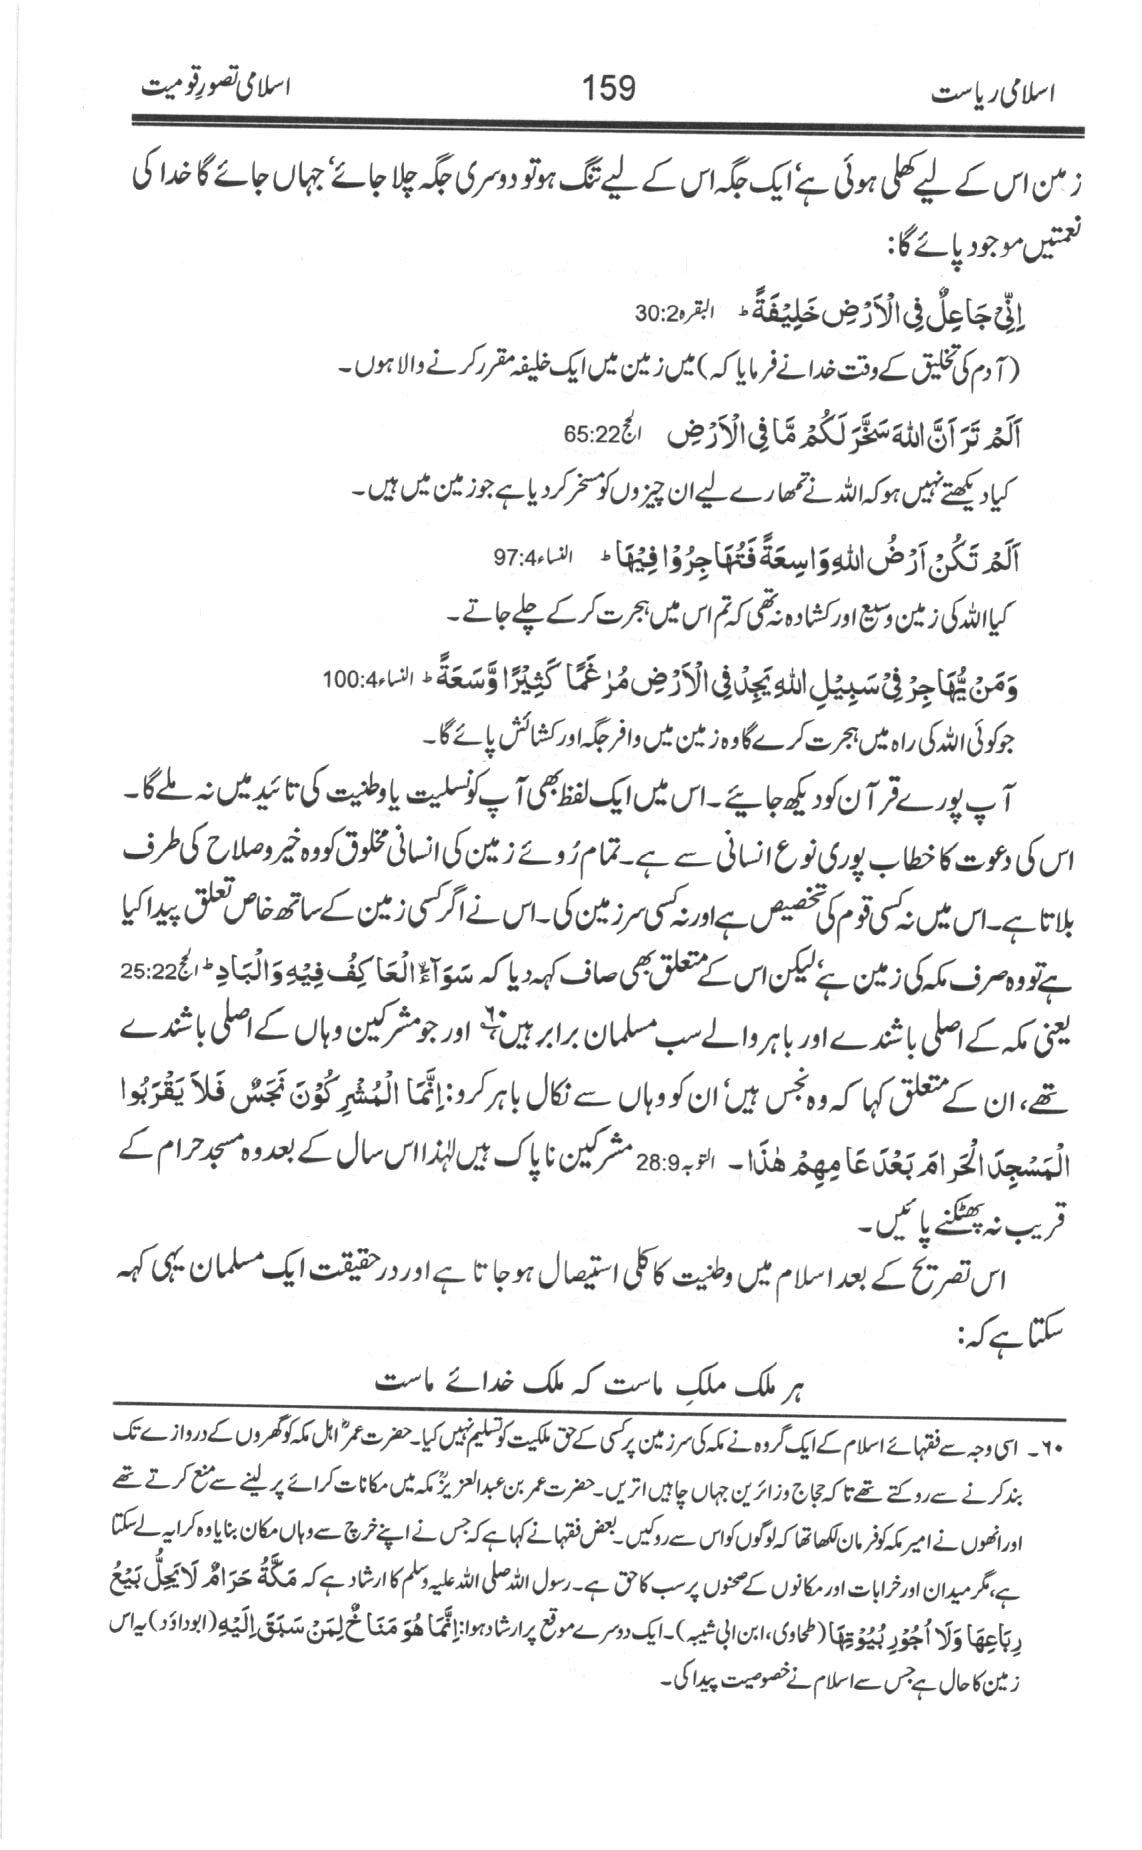 اسلامی ریاست 159 اسلامی تصورِ قومیت
زمین اس کے لیے کھلی ہوئی ہے، ایک جگہ اس کے لیے تنگ ہو تو دوسری جگہ چلا جائے، جہاں جائے گا خدا کی
نعمتیں موجود پائے گا:
اِنِّیْ جَاعِلٌ فِی الْاَرْضِ خَلِیْفَةً ؕ البقرہ 30:2
(آدم کی تخلیق کے وقت خدا نے فرمایا کہ) میں زمین میں ایک خلیفہ مقرر کرنے والا ہوں۔
اَلَمْ تَرَ اَنَّ اللهَ سَخَّرَ لَكُمْ مَّا فِی الْاَرْضِ الحج 65:22
کیا دیکھتے نہیں ہو کہ اللہ نے تمھارے لیے ان چیزوں کو مسخر کر دیا ہے جو زمین میں ہیں۔
اَلَمْ تَكُنْ اَرْضُ اللهِ وَاسِعَةً فَتُهَاجِرُوْا فِيْهَا ؕ النساء 97:4
کیا اللہ کی زمین وسیع اور کشادہ نہ تھی کہ تم اس میں ہجرت کر کے چلے جاتے۔
وَمَنْ يُّهَاجِرْ فِیْ سَبِيْلِ اللهِ يَجِدْ فِی الْاَرْضِ مُرٰغَمًا كَثِيْرًا وَّسَعَةً ؕ النساء 100:4
جو کوئی اللہ کی راہ میں ہجرت کرے گا وہ زمین میں وافر جگہ اور کشائش پائے گا۔
آپ پورے قرآن کو دیکھ جائیے۔ اس میں ایک لفظ بھی آپ کو نسلیت یا وطنیت کی تائید میں نہ ملے گا۔
اس کی دعوت کا خطاب پوری نوع انسانی سے ہے۔ تمام رُوئے زمین کی انسانی مخلوق کو وہ خیر و صلاح کی طرف
بلاتا ہے۔ اس میں نہ کسی قوم کی تخصیص ہے اور نہ کسی سرزمین کی۔ اس نے اگر کسی زمین کے ساتھ خاص تعلق پیدا کیا
ہے تو وہ صرف مکہ کی زمین ہے، لیکن اس کے متعلق بھی صاف کہہ دیا کہ سَوَآءَۨ الْعَاكِفُ فِيْهِ وَالْبَادِ ؕ الحج 25:22
یعنی مکہ کے اصلی باشندے اور باہر والے سب مسلمان برابر ہیں۶۰؎ اور جو مشرکین وہاں کے اصلی باشندے
تھے، ان کے متعلق کہا کہ وہ نجس ہیں، ان کو وہاں سے نکال باہر کرو: اِنَّمَا الْمُشْرِكُوْنَ نَجَسٌ فَلَا يَقْرَبُوا
الْمَسْجِدَ الْحَرَامَ بَعْدَ عَامِهِمْ هٰذَا۔ التوبہ 28:9 مشرکین ناپاک ہیں لہٰذا اس سال کے بعد وہ مسجد حرام کے
قریب نہ پھٹکنے پائیں۔
اس تصریح کے بعد اسلام میں وطنیت کا کلی استیصال ہو جاتا ہے اور درحقیقت ایک مسلمان یہی کہہ
سکتا ہے کہ:
ہر ملک ملکِ ماست کہ ملک خدائے ماست
۶۰۔ اسی وجہ سے فقہائے اسلام کے ایک گروہ نے مکہ کی سرزمین پر کسی کے حق ملکیت کو تسلیم نہیں کیا۔ حضرت عمرؓ اہل مکہ کو گھروں کے دروازے تک
بند کرنے سے روکتے تھے تاکہ حجاج و زائرین جہاں چاہیں اتریں۔ حضرت عمر بن عبدالعزیزؒ مکہ میں مکانات کرائے پر لینے سے منع کرتے تھے
اور انھوں نے امیر مکہ کو فرمان لکھا تھا کہ لوگوں کو اس سے روکیں۔ بعض فقہا نے کہا ہے کہ جس نے اپنے خرچ سے وہاں مکان بنایا وہ کرایہ لے سکتا
ہے، مگر میدان اور خرابات اور مکانوں کے صحنوں پر سب کا حق ہے۔ رسول اللہ صلی اللہ علیہ وسلم کا ارشاد ہے کہ مَكَّةُ حَرَامٌ لَا يَحِلُّ بَيْعُ
رِبَاعِهَا وَلَا اُجُوْرِ بُيُوْتِهَا (طحاوی، ابن ابی شیبہ)۔ ایک دوسرے موقع پر ارشاد ہوا: اِنَّمَا هُوَ مَنَاخٌ لِمَنْ سَبَقَ اِلَيْهِ (ابوداؤد) یہ اس
زمین کا حال ہے جس سے اسلام نے خصوصیت پیدا کی۔